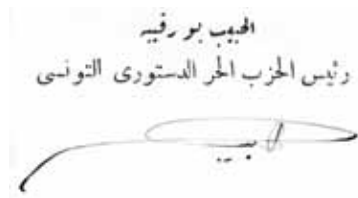 الحبيب بو رقيبه
رئيس الحزب الحر الدستورى التونسى